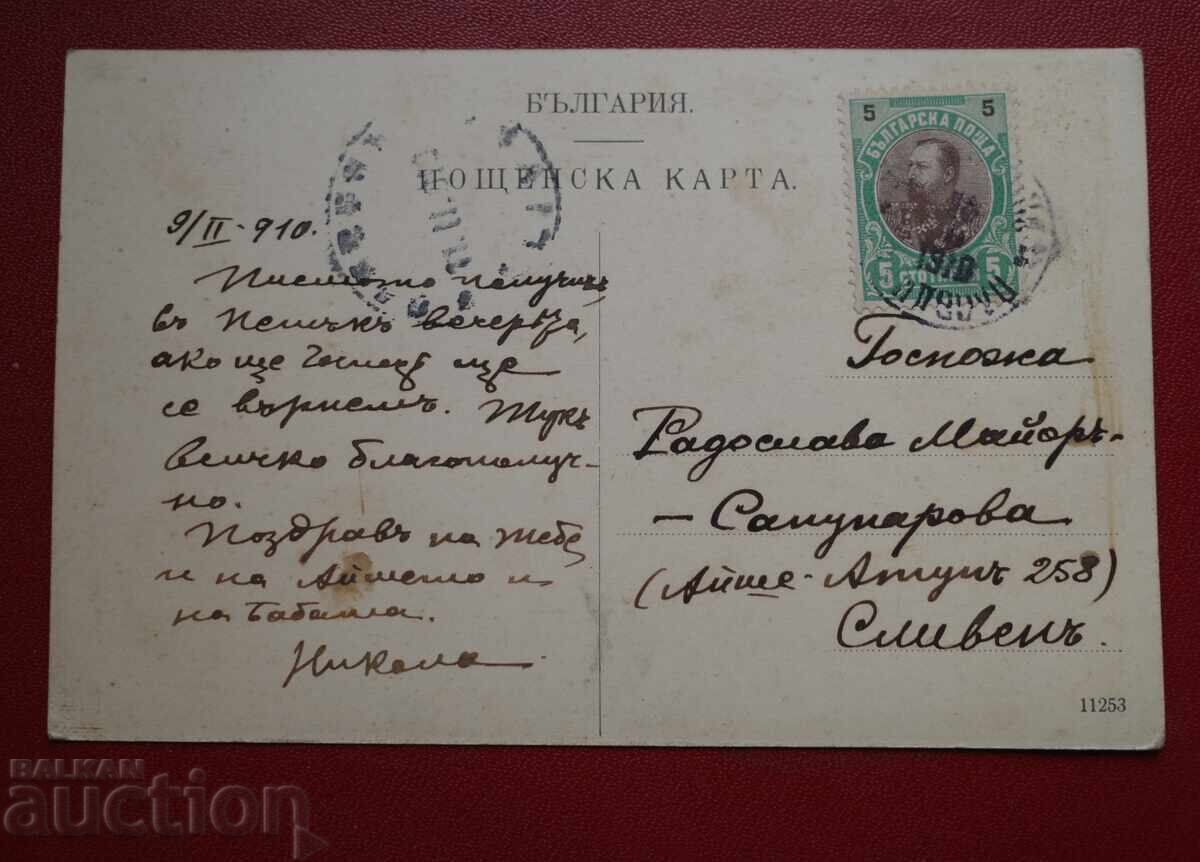 БЪЛГАРИЯ.
ПОЩЕНСКА КАРТА.
5 5
БЪЛГАРСКА ПОЩА
5 СТО 5
1910
ПЛОВДИВ
9/II - 910.
Писмото получи
въ вечерьта,
ако ще
се върнемъ. Тукъ
всичко благополуч-
но.
Поздравъ на тебе
и на и
на бабата.
Никола
Госпожа
Радослава Майоръ-
- Сапунарова
(Айше-Атунъ 258)
Сливенъ.
11253
BALKAN
auction